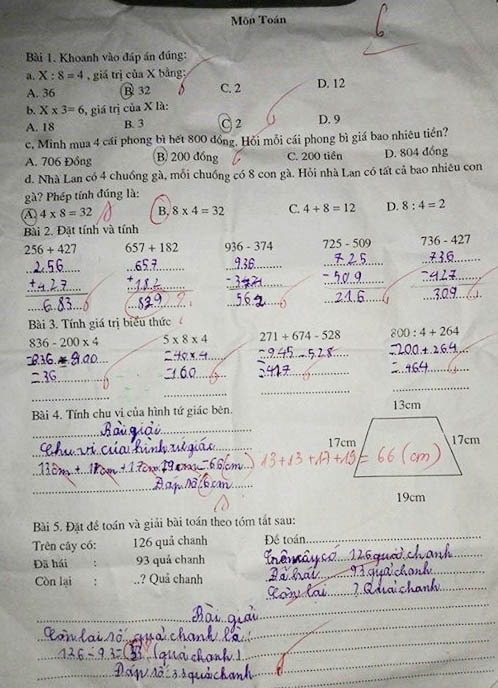 Môn Toán
6
Bài 1. Khoanh vào đáp án đúng:
a. X : 8 = 4 , giá trị của X bằng:
A. 36 B. 32 C. 2 D. 12
b. X x 3= 6, giá trị của X là:
A. 18 B. 3 C. 2 D. 9
c, Minh mua 4 cái phong bì hết 800 đồng. Hỏi mỗi cái phong bì giá bao nhiêu tiền?
A. 706 Đồng B. 200 đồng C. 200 tiền D. 804 đồng
d. Nhà Lan có 4 chuồng gà, mỗi chuồng có 8 con gà. Hỏi nhà Lan có tất cả bao nhiêu con
gà? Phép tính đúng là:
A. 4 x 8 = 32 B. 8 x 4 = 32 C. 4 + 8 = 12 D. 8 : 4 = 2
Bài 2. Đặt tính và tính
256 + 427 657 + 182 936 - 374 725 - 509 736 - 427
256 657 936 725 736
+ 427 + 182 - 374 - 509 - 427
683 829 562 216 309
Bài 3. Tính giá trị biểu thức
836 - 200 x 4 5 x 8 x 4 271 + 674 - 528 800 : 4 + 264
= 836 - 800 = 40 x 4 = 945 - 528 = 200 + 264
= 36 = 160 = 417 = 464
Bài 4. Tính chu vi của hình tứ giác bên.
13cm
Bài giải
Chu vi của hình tứ giác
17cm 17cm
13cm + 17cm + 17cm 19cm = 66 (cm) 13 + 13 + 17 + 19 = 66 (cm)
Đáp số 6cm
19cm
Bài 5. Đặt đề toán và giải bài toán theo tóm tắt sau:
Trên cây có: 126 quả chanh Đề toán
Đã hái : 93 quả chanh Trên cây có 126 quả chanh
Còn lại : ..? Quả chanh Đã hái 93 quả chanh
Còn lại ? Quả chanh
Bài giải
Còn lại số quả chanh là:
126 - 93 = 33 (quả chanh)
Đáp số: 33 quả chanh